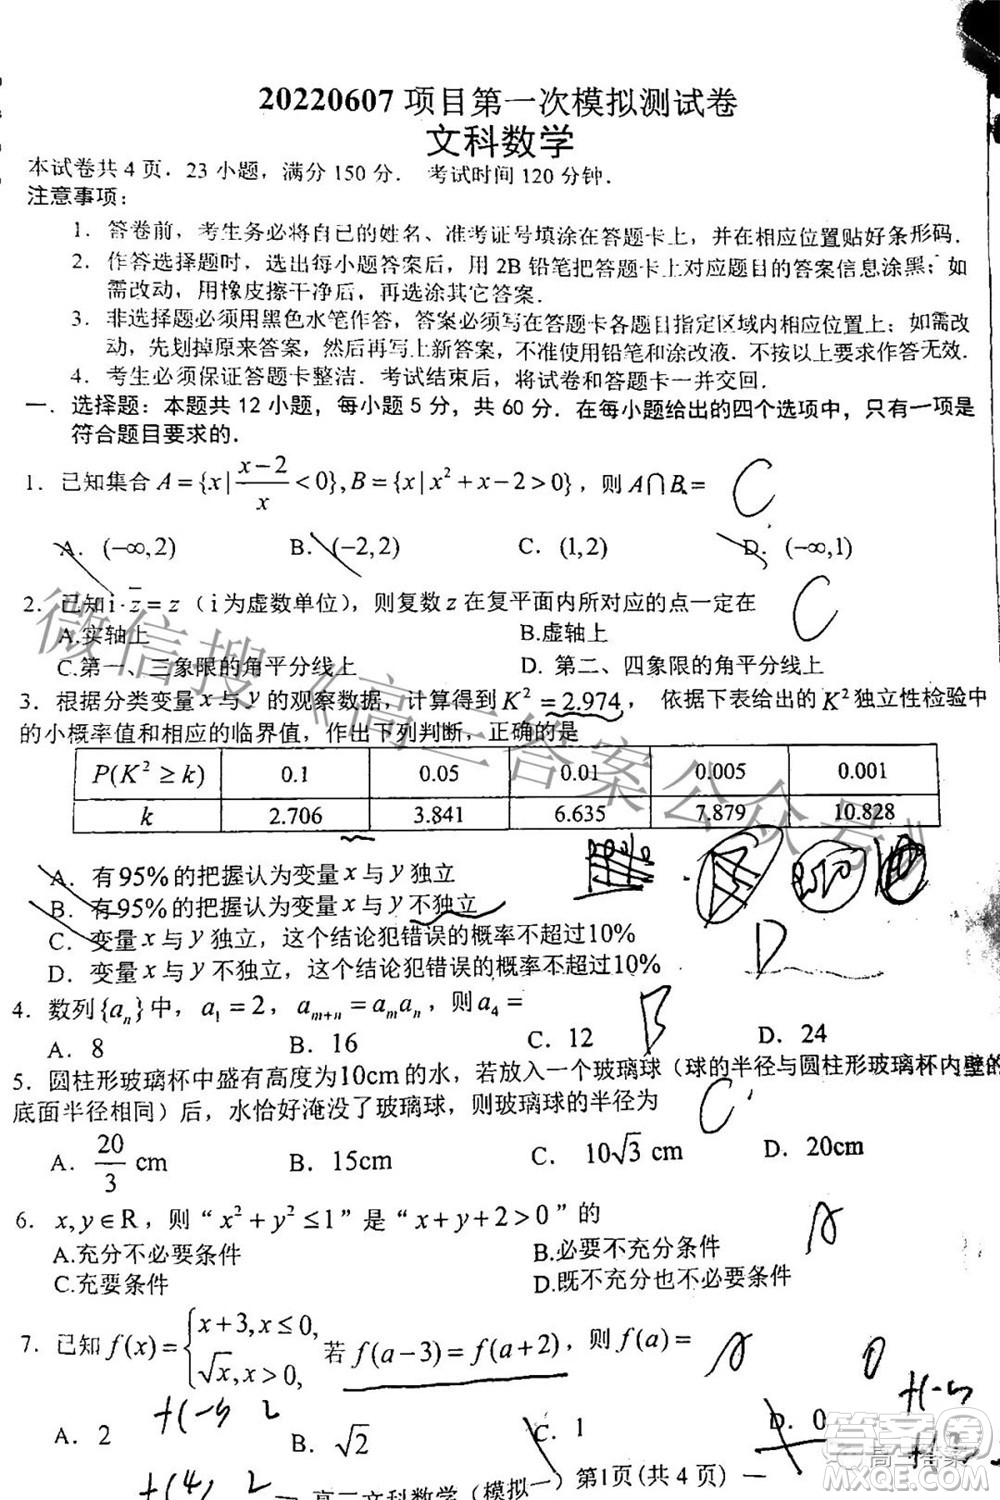 20220607项目第一次模拟测试卷
文科数学
本试卷共4页．23小题，满分150分． 考试时间120分钟．
注意事项：
1．答卷前，考生务必将自己的姓名、准考证号填涂在答题卡上，并在相应位置贴好条形码．
2．作答选择题时，选出每小题答案后，用2B铅笔把答题卡上对应题目的答案信息涂黑；如
需改动，用橡皮擦干净后，再选涂其它答案．
3．非选择题必须用黑色水笔作答，答案必须写在答题卡各题目指定区域内相应位置上；如需改
动，先划掉原来答案，然后再写上新答案，不准使用铅笔和涂改液．不按以上要求作答无效．
4．考生必须保证答题卡整洁．考试结束后，将试卷和答题卡一并交回．
一．选择题：本题共12小题，每小题5分，共60分．在每小题给出的四个选项中，只有一项是
符合题目要求的．
1．已知集合A={x|(x-2)/x<0},B={x|x²+x-2>0}，则A∩B= C
A．(-∞,2) B．(-2,2) C．(1,2) D．(-∞,1)
2．已知i·z̄=z（i为虚数单位），则复数z在复平面内所对应的点一定在 C
A.实轴上 B.虚轴上
C.第一、三象限的角平分线上 D. 第二、四象限的角平分线上
3．根据分类变量x与y的观察数据，计算得到K²=2.974， 依据下表给出的K²独立性检验中
的小概率值和相应的临界值，作出下列判断，正确的是
P(K²≥k) 0.1 0.05 0.01 0.005 0.001
k 2.706 3.841 6.635 7.879 10.828
A．有95%的把握认为变量x与y独立
B．有95%的把握认为变量x与y不独立
C．变量x与y独立，这个结论犯错误的概率不超过10%
D．变量x与y不独立，这个结论犯错误的概率不超过10%
D
4．数列{aₙ}中，a₁=2，aₘ₊ₙ=aₘaₙ，则a₄= B
A．8 B．16 C．12 D．24
5．圆柱形玻璃杯中盛有高度为10cm的水，若放入一个玻璃球（球的半径与圆柱形玻璃杯内壁的
底面半径相同）后，水恰好淹没了玻璃球，则玻璃球的半径为 C
A．20/3 cm B．15cm C． 10√3 cm D．20cm
6．x,y∈R，则“x²+y²≤1”是“x+y+2>0”的 A
A.充分不必要条件 B.必要不充分条件
C.充要条件 D.既不充分也不必要条件
7．已知f(x)={x+3,x≤0, √x,x>0, 若f(a-3)=f(a+2)，则f(a)= A
A．2 B．√2 C．1 D．0
高三文科数学（模拟一）第1页(共4页) —
微信搜《高三答案公众号》
答案圈
高三答案
MXQE.COM